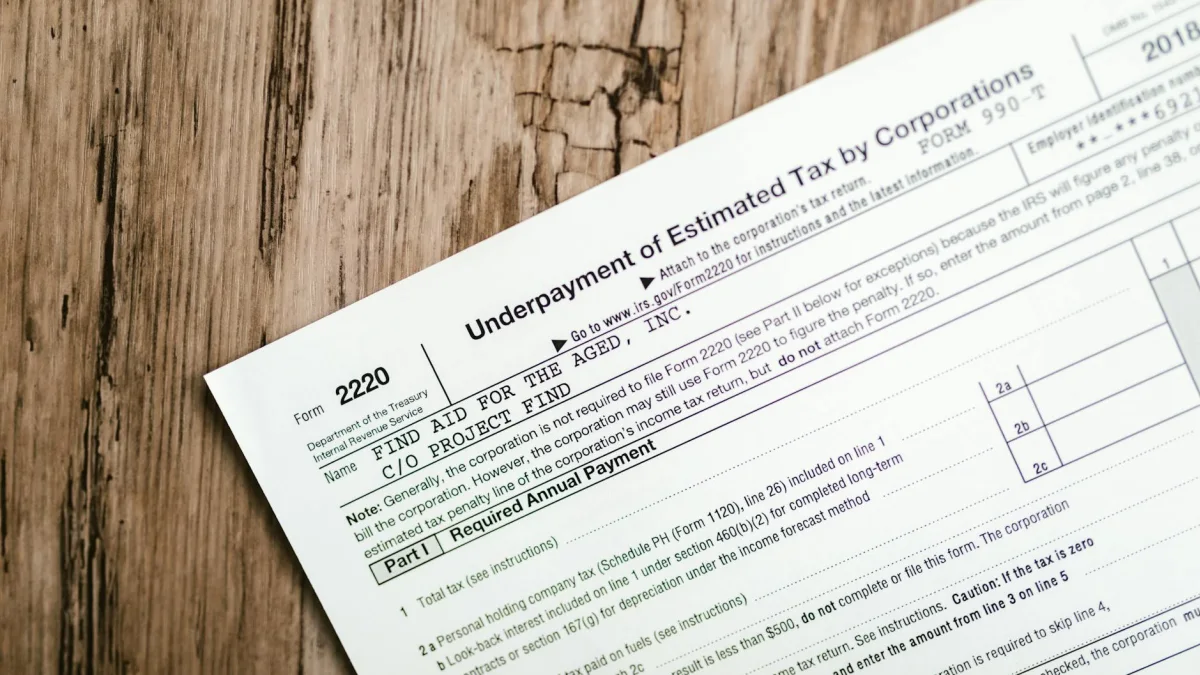 Form 2220
Department of the Treasury
Internal Revenue Service
Underpayment of Estimated Tax by Corporations
FORM 990-T
▶ Attach to the corporation's tax return.
▶ Go to www.irs.gov/Form2220 for instructions and the latest information.
OMB No.
2018
Name
FIND AID FOR THE AGED, INC.
C/O PROJECT FIND
Employer identification
**-***692
Note: Generally, the corporation is not required to file Form 2220 (see Part II below for exceptions) because the IRS will figure any penalty
bill the corporation. However, the corporation may still use Form 2220 to figure the penalty. If so, enter the amount from page 2, line 38, on
estimated tax penalty line of the corporation's income tax return, but do not attach Form 2220.
Part I Required Annual Payment
1 Total tax (see instructions)
1
2 a Personal holding company tax (Schedule PH (Form 1120), line 26) included on line 1
2a
b Look-back interest included on line 1 under section 460(b)(2) for completed long-term
contracts or section 167(g) for depreciation under the income forecast method
2b
tax paid on fuels (see instructions)
2c
2c
result is less than $500, do not complete or file this form. The corporation
tax return. See instructions. Caution: If the tax is zero
and enter the amount from line 3 on line 5
is required to skip line 4,
checked, the corporation